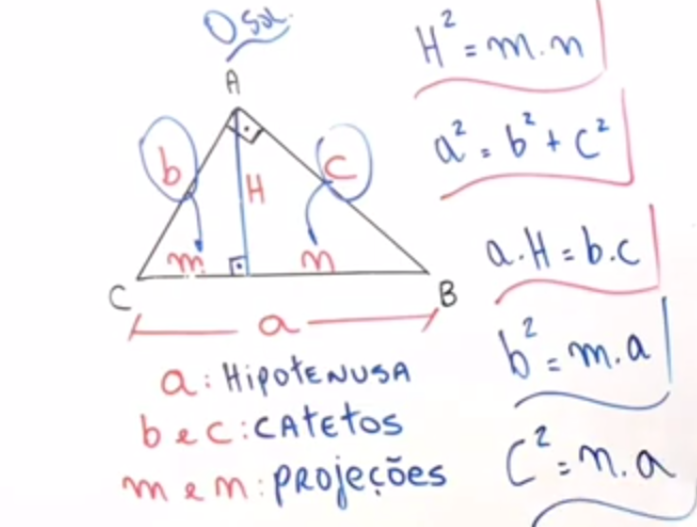 O Sol.
A
b
H
c
m
n
C
B
a
a: HipotENUSA
b e c: CAtEtos
m e n: pRojeções
H² = m.n
a² = b² + c²
a.H = b.c
b² = m.a
C² = n.a